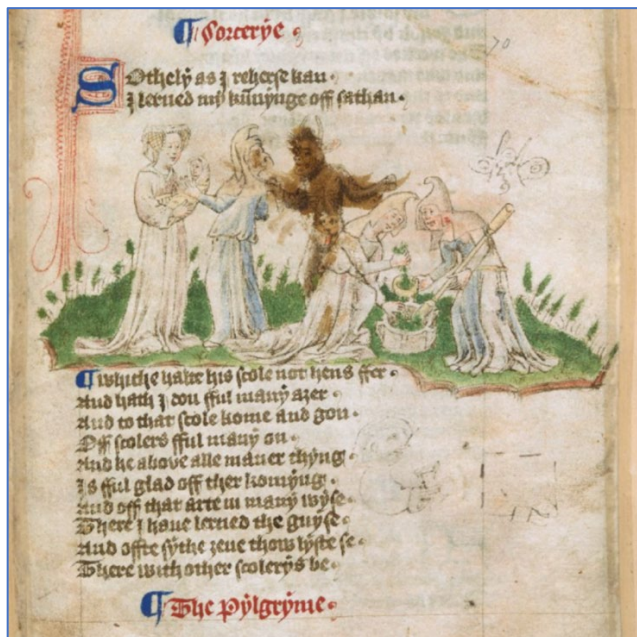 ¶ Sorcerye
70
Sothely as I reherse kan
I lerned my kunnynge off sathan
¶ Whiche halte his scole nor hens ffer
And hath I don fful many a ȝer
And to that scole kome and gon
Off scolers fful many on
And he above alle maner thyng
Is fful glad off ther komyng
And off that arte in many wyse
There I have lerned the guyse
And offte sythe ȝeue thow lyste se
There with other scolerys be
¶ The Pylgryme